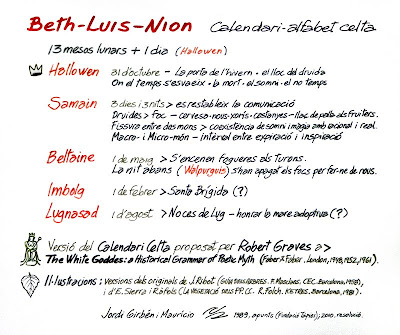 Beth-Luis-Nion Calendari-alfabet celta
13 mesos lunars + 1 dia (Hallowen)
Hallowen 31 d'octubre - La porta de l'hivern. el lloc del druida
On el temps s'esvaeix - la mort. el somni. el no temps
Samain 3 dies i 3 nits > es restableix la comunicació
Druides > foc - cervesa-nous-porcs-castanyes - lloc de pedra als fruiters.
Fissura entre des mons > coexistència de somni i màgia amb racional i real.
Macro- i Micro-món - interval entre expiració i inspiració
Beltaine 1 de maig > S'encenen fogueres als Turons.
La nit abans (Walpurguis) s'han apagat els focs per fer-ne de nous.
Imbolg 1 de febrer > Santa Brígida (?)
Lugnasad 1 d'agost > Noces de Lug - honrar la mare adoptiva (?)
Versió del Calendari Celta proposat per Robert Graves a >
The White Goddes: a Historical Grammar of Poetic Myth (Faber & Faber. London, 1948, 1952, 1961).
Il·lustracions: Versions dels originals de J. Ribot (F. Masclans. CEC. Barcelona, 1958).
i d'E. Sierra i Ràfols (La vegetació dels PPCC. R. Folch. KETRES. Barcelona, 1981).
Jordi Girbén i Mauricio 1989. apunts (Fundació Tàpies); 2010. resolució.